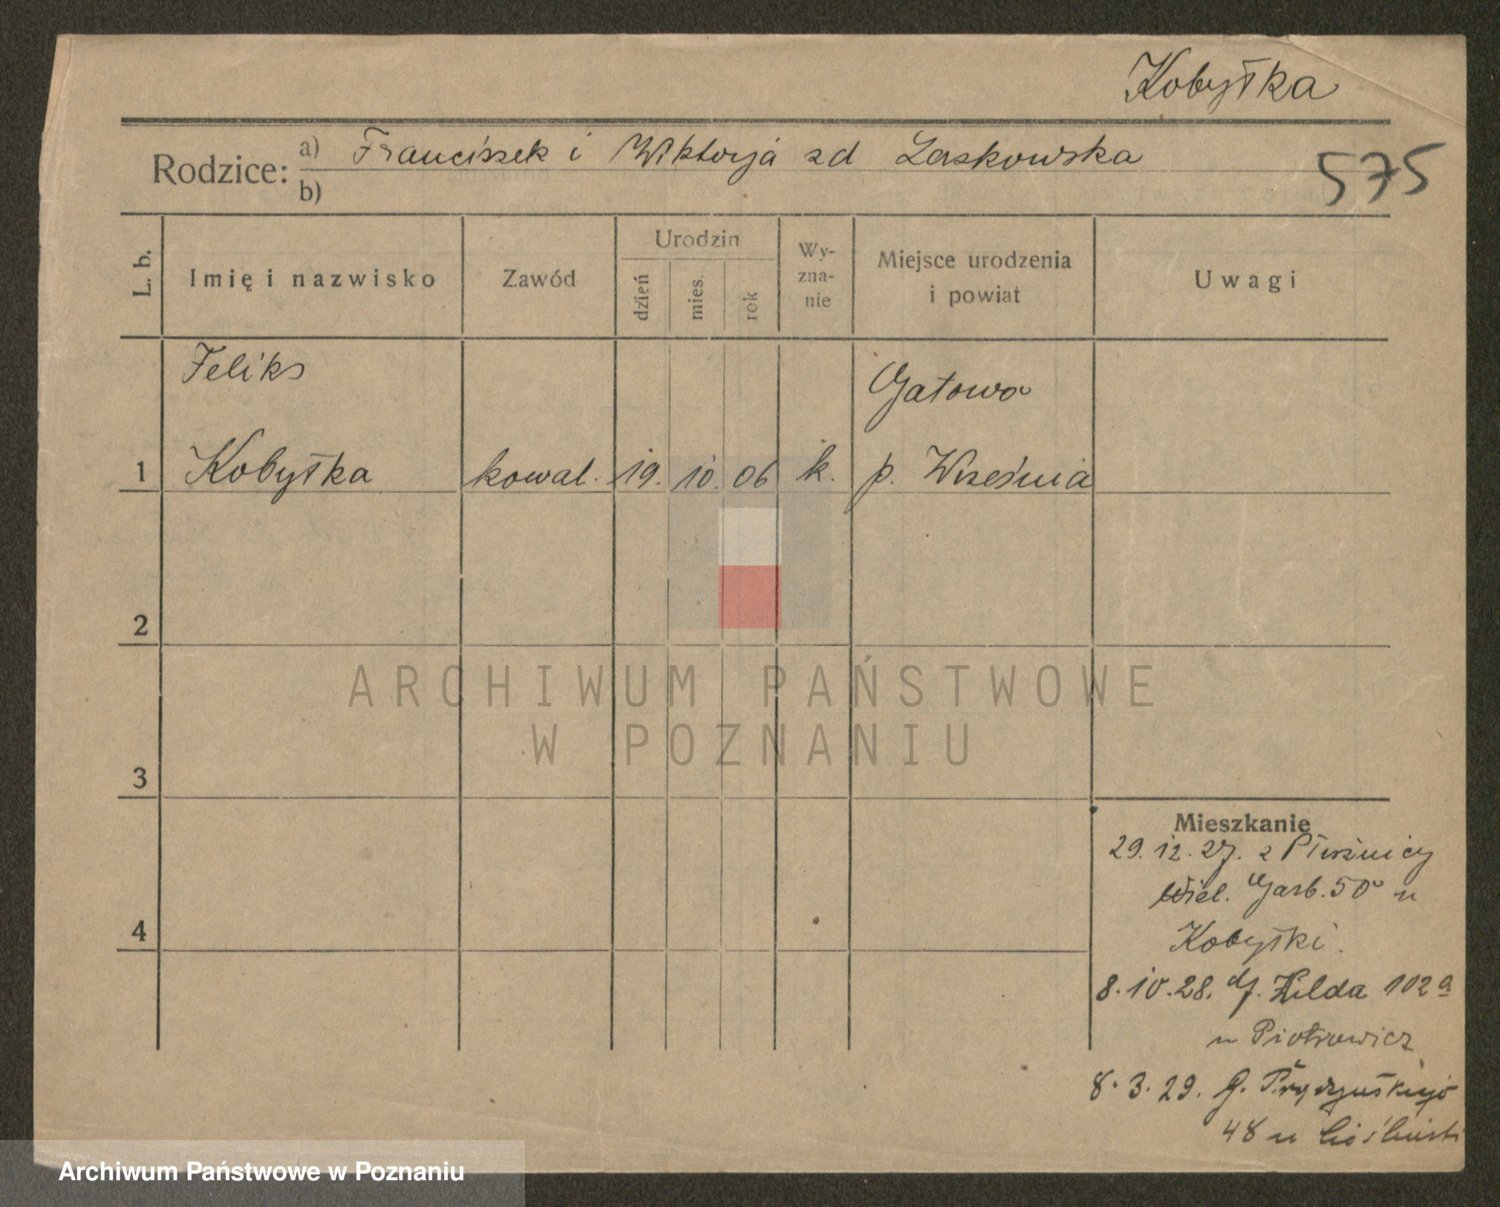 Kobyłka
Rodzice: a) Franciszek i Wiktorja zd Laskowska
b)
575
L. b.
Imię i nazwisko
Zawód
Urodzin
dzień
mies.
rok
Wy-
zna-
nie
Miejsce urodzenia
i powiat
Uwagi
Feliks
Gatowo
1 Kobyłka kowal. 19. 10. 06 k. p. Września
2
ARCHIWUM PAŃSTWOWE
W POZNANIU
3
Mieszkanie
29. 12. 27. z
Wiel. Garb. 50 u
Kobyłki.
4
8. 10. 28. Hilda 102a
u Piotrowicz
8. 3. 29. G. Prądzyńskiego
48 u
Archiwum Państwowe w Poznaniu